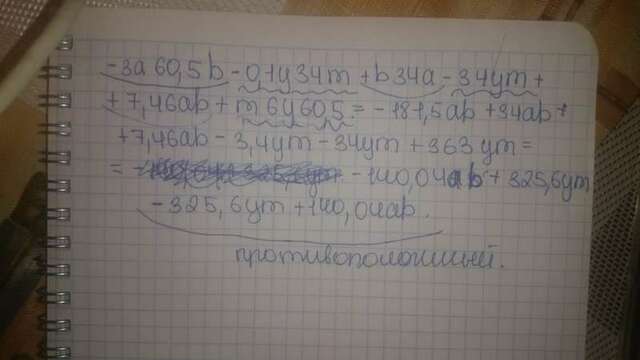 -3a60,5b - 0,1y34m + b34a - 34ym +
+ 7,46ab + m6y60,5 = -181,5ab + 34ab +
+ 7,46ab - 3,4ym - 34ym + 363ym =
= - 140,04ab + 325,6ym
- 325,6ym + 140,04ab.
противоположный.